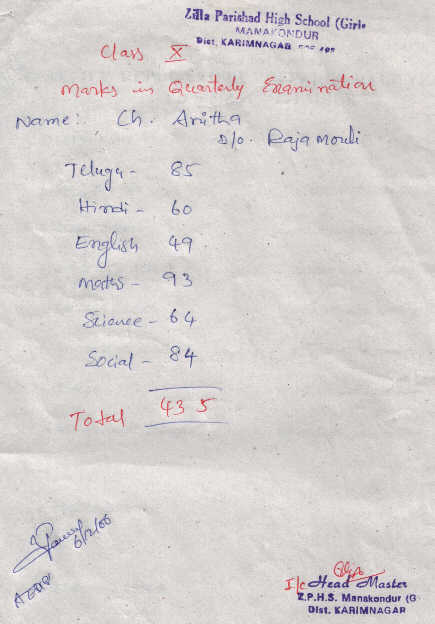 Zilla Parishad High School (Girls
MANAKONDUR
Dist. KARIMNAGAR
Class X
Marks in Quarterly Examination
Name:. Ch. Anitha
D/o. Rajamouli
Telugu - 85
Hindi - 60
English 49
Maths - 93
Science - 64
Social - 84
Total 435
6/2/06
I/c Head Master
Z.P.H.S. Manakondur (G
Dist. KARIMNAGAR